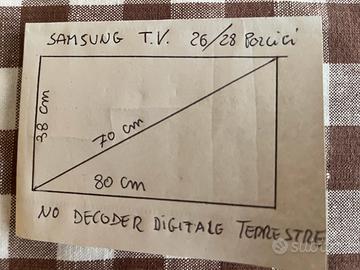 SAMSUNG T.V. 26/28 POLLICI
38 cm
70 cm
80 cm
NO DECODER DIGITALE TERRESTRE
subito